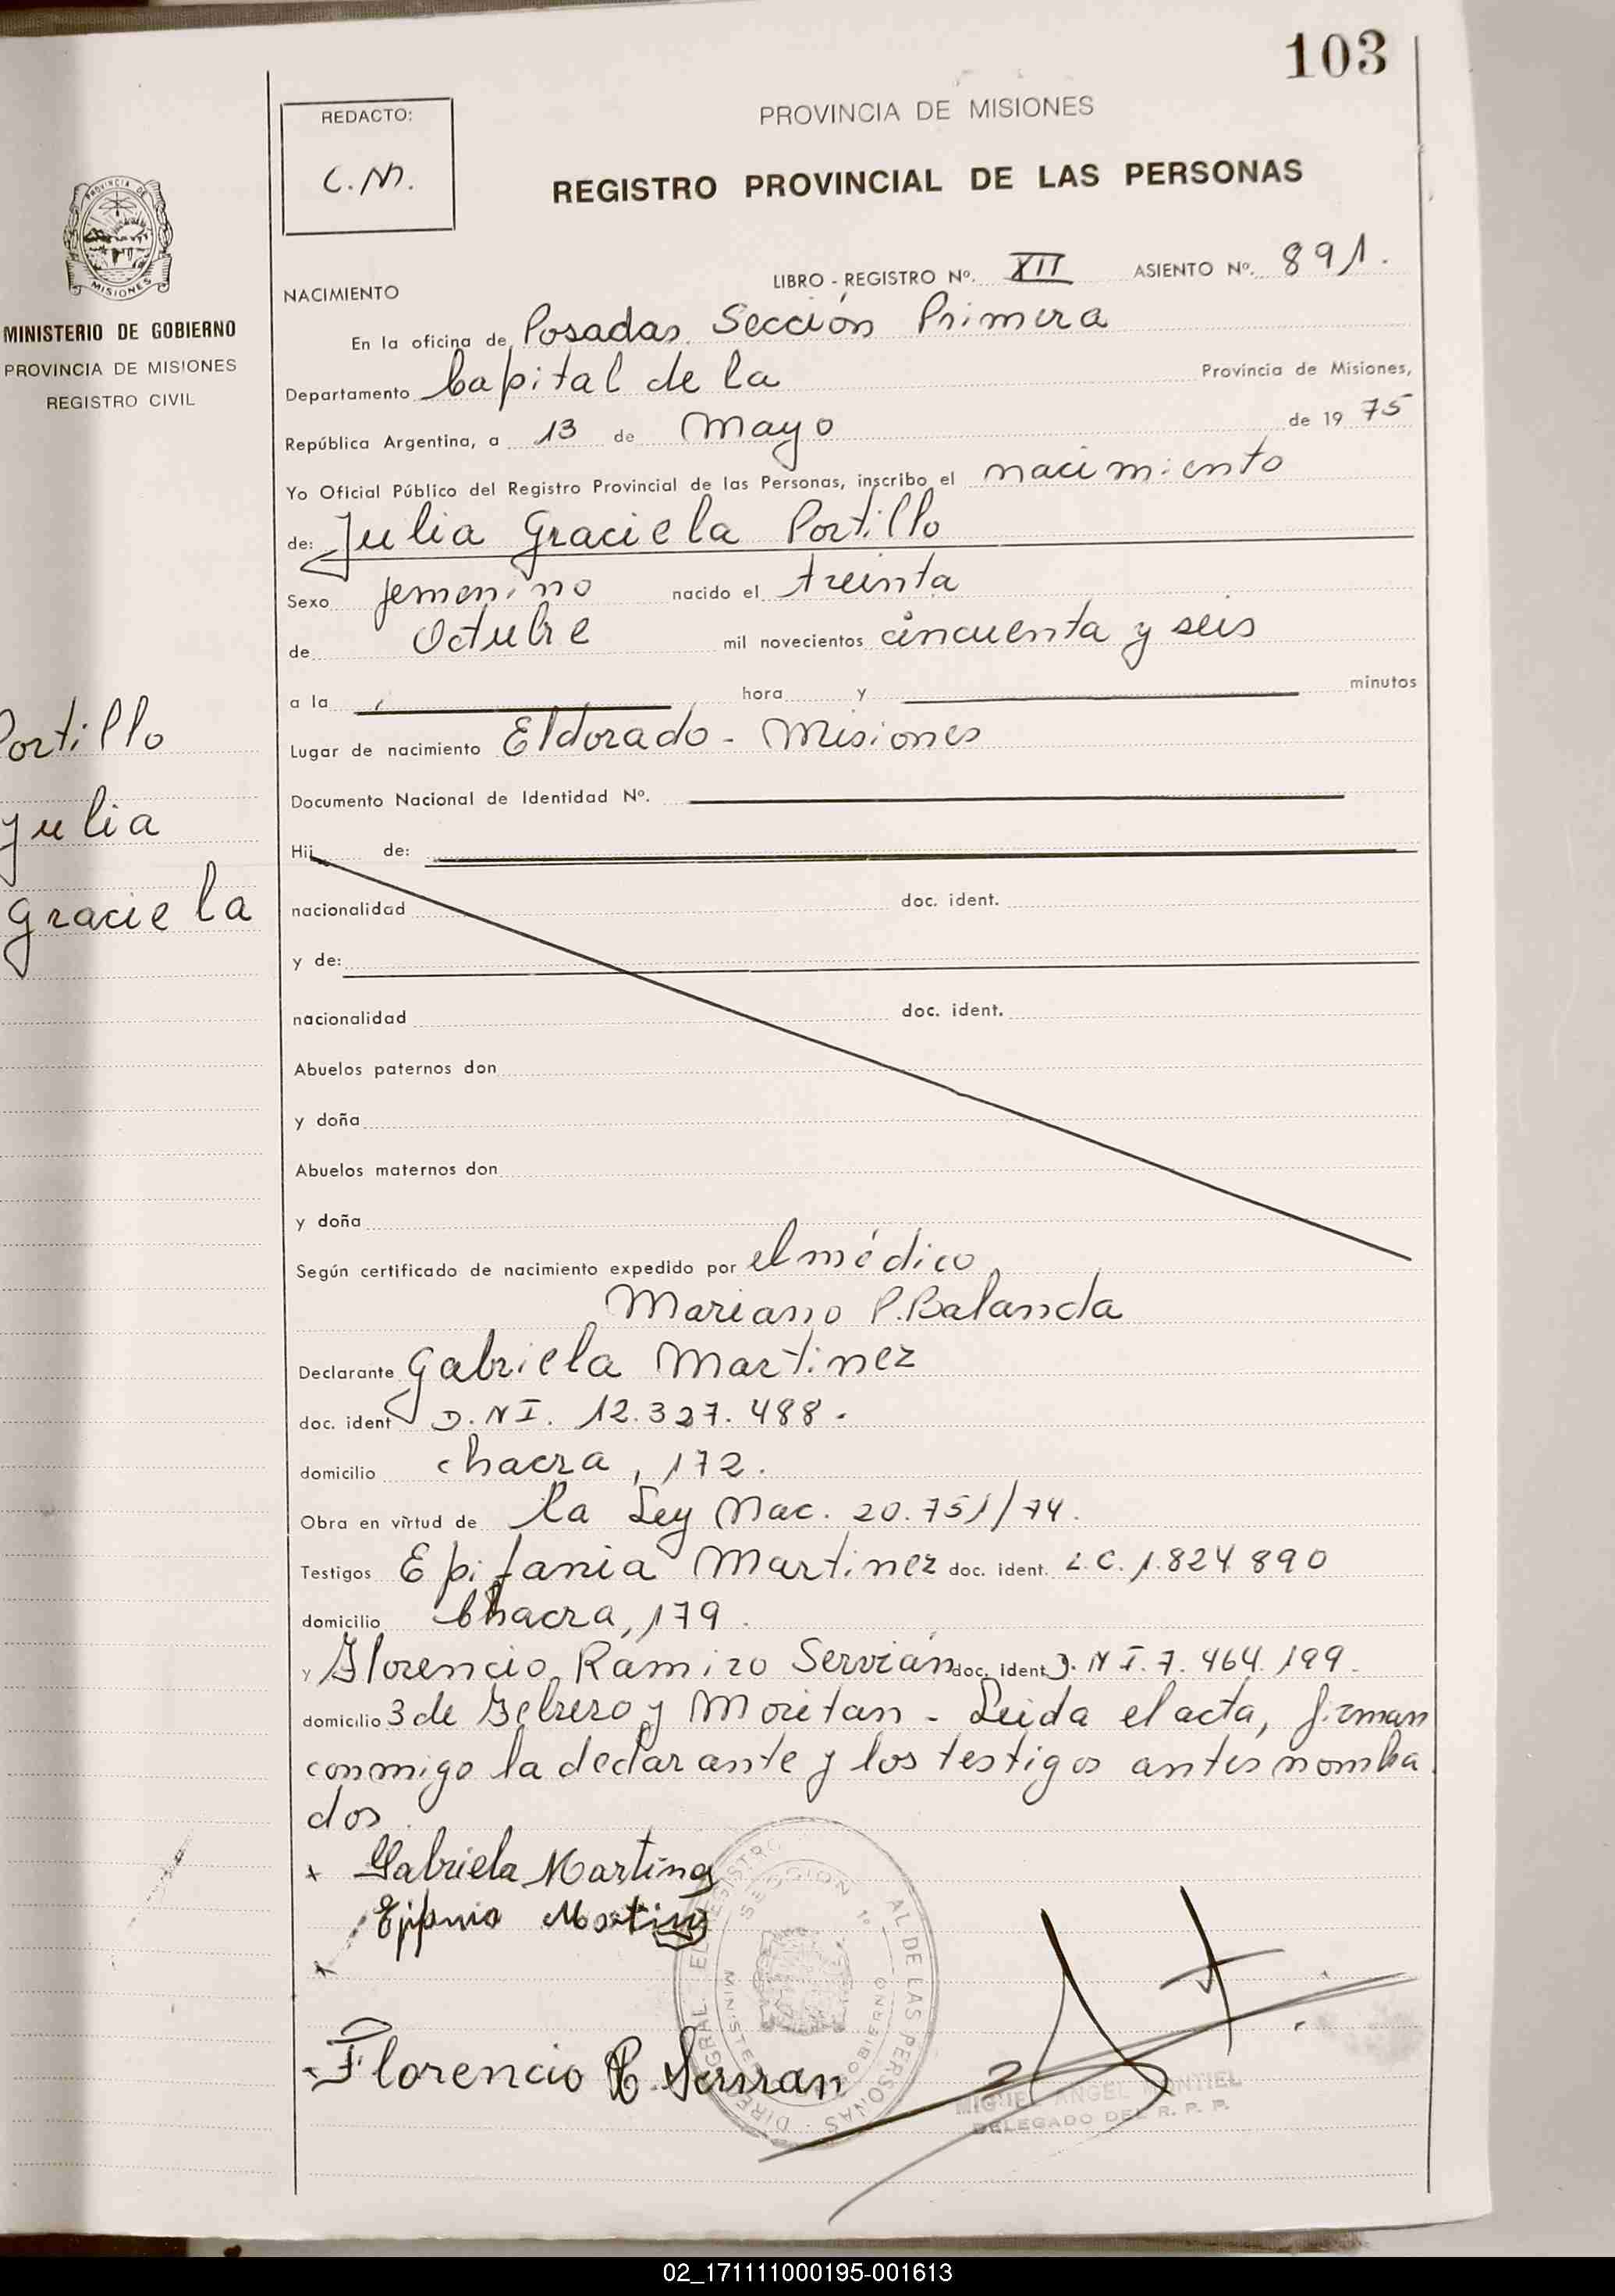 103
REDACTO:
C.M.
PROVINCIA DE MISIONES
REGISTRO PROVINCIAL DE LAS PERSONAS
PROVINCIA DE
MISIONES
MINISTERIO DE GOBIERNO
PROVINCIA DE MISIONES
REGISTRO CIVIL
Portillo
Julia
Graciela
NACIMIENTO LIBRO - REGISTRO Nº. XII ASIENTO Nº. 891.
En la oficina de Posadas, Sección Primera
Departamento Capital de la Provincia de Misiones,
República Argentina, a 13 de Mayo de 19 75
Yo Oficial Público del Registro Provincial de las Personas, inscribo el nacimiento
de: Julia Graciela Portillo
Sexo femenino nacido el treinta
de Octubre mil novecientos cincuenta y seis
a la hora y minutos
Lugar de nacimiento Eldorado - Misiones
Documento Nacional de Identidad Nº.
Hij de:
nacionalidad doc. ident.
y de:
nacionalidad doc. ident.
Abuelos paternos don
y doña
Abuelos maternos don
y doña
Según certificado de nacimiento expedido por el médico
Mariano P. Balanda
Declarante Gabriela Martinez
doc. ident D.N.I. 12.327.488.
domicilio chacra, 172.
Obra en virtud de la Ley Nac. 20.751/74.
Testigos Epifania Martinez doc. ident. L.C. 1.824.890
domicilio Chacra, 179.
y Florencio Ramiro Servián doc. ident D.N.I. 7.464.199.
domicilio 3 de Febrero y Moritan - Leida el acta, firman
conmigo la declarante y los testigos antes nombra
dos.
x Gabriela Martinez
Epifania Martinez
x
Florencio R. Servian
MIGUEL ANGEL MONTIEL
DELEGADO DEL R. P. P.
02_171111000195-001613